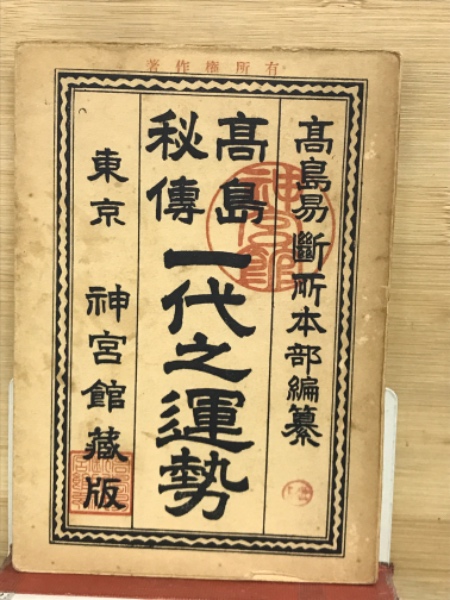 有所権作著
髙島易斷所本部編纂
髙島
秘傳
一代之運勢
東京 神宮館藏版
神宮館